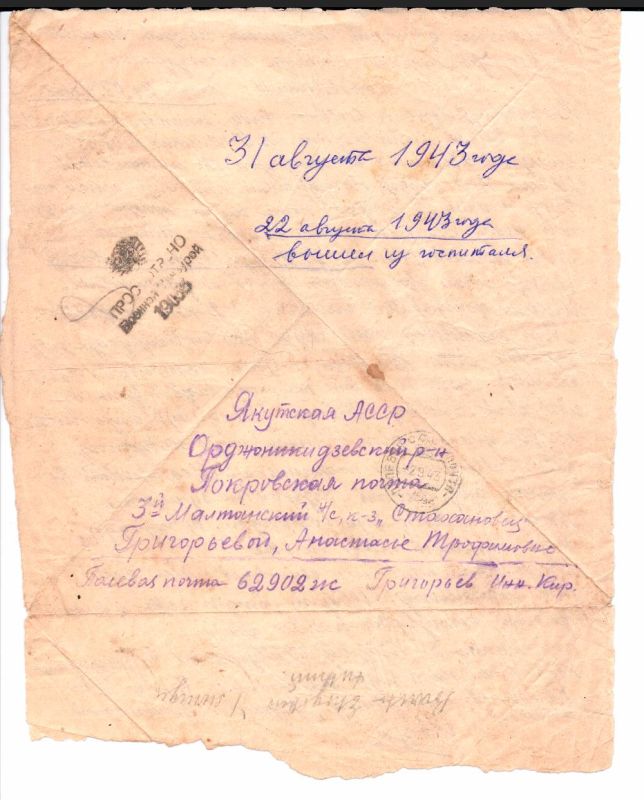 31 августа 1943 года
22 августа 1943 года
вышел из госпиталя.
ПРОСМОТРЕНО
Военной Цензурой
19033
Якутская АССР
Орджоникидзевский р-н
Покровская почта
3й Малтанский н/с, к-з „Стахановец"
Григорьевой, Анастасье Трофимовне
Полевая почта 62902ж Григорьев Инн. Кир.